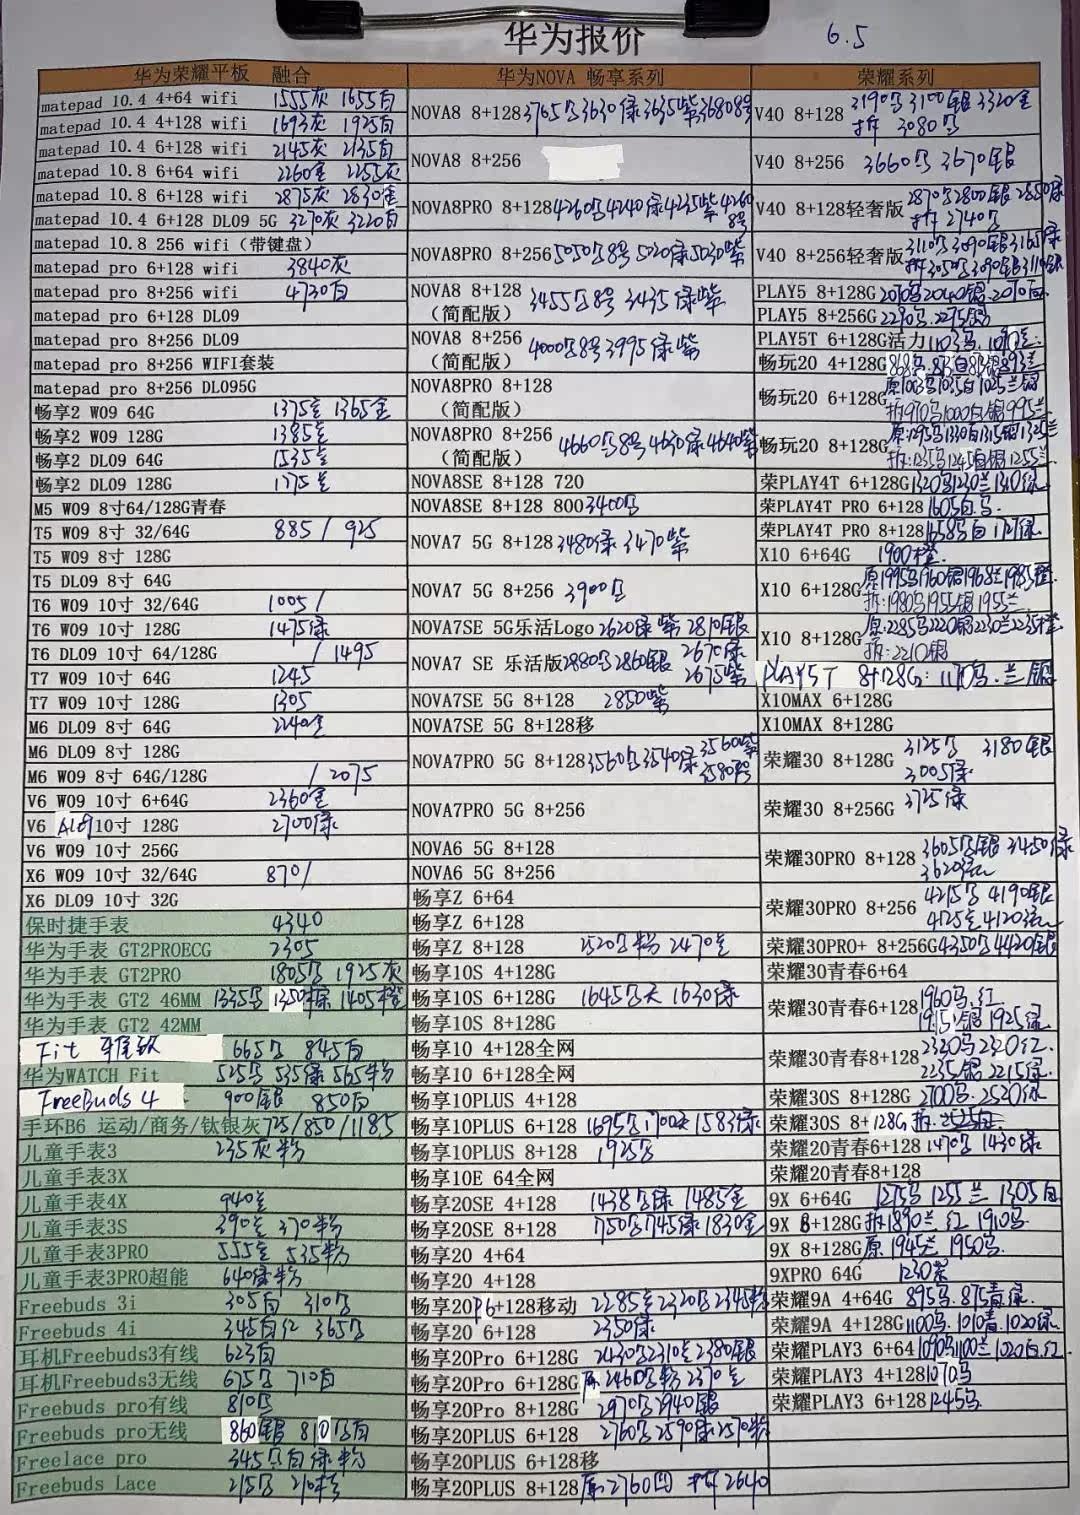 华为报价 6.5
华为荣耀平板 融合
matepad 10.4 4+64 wifi 1555灰 1655白
matepad 10.4 4+128 wifi 1693灰 1925白
matepad 10.4 6+128 wifi 2145灰 2135白
matepad 10.8 6+64 wifi 2260金 2255灰
matepad 10.8 6+128 wifi 2875灰 2830金
matepad 10.4 6+128 DL09 5G 3270灰 3220白
matepad 10.8 256 wifi(带键盘)
matepad pro 6+128 wifi 3840灰
matepad pro 8+256 wifi 4730白
matepad pro 6+128 DL09
matepad pro 8+256 DL09
matepad pro 8+256 WIFI套装
matepad pro 8+256 DL095G
畅享2 W09 64G 1375兰 1365金
畅享2 W09 128G 1385兰
畅享2 DL09 64G 1535兰
畅享2 DL09 128G 1775兰
M5 W09 8寸64/128G青春
T5 W09 8寸 32/64G 885/925
T5 W09 8寸 128G
T5 DL09 8寸 64G
T6 W09 10寸 32/64G 1005/
T6 W09 10寸 128G 1475绿
T6 DL09 10寸 64/128G /1495
T7 W09 10寸 64G 1245
T7 W09 10寸 128G 1305
M6 DL09 8寸 64G 2240金
M6 DL09 8寸 128G
M6 W09 8寸 64G/128G /2075
V6 W09 10寸 6+64G 2360金
V6 AL09 10寸 128G 2700绿
V6 W09 10寸 256G
X6 W09 10寸 32/64G 870/
X6 DL09 10寸 32G
保时捷手表 4340
华为手表 GT2PROECG 2305
华为手表 GT2PRO 1805黑 1925灰
华为手表 GT2 46MM 1335黑 1350棕 1405橙
华为手表 GT2 42MM
Fit 雅致 665黑 845白
华为WATCH Fit 525黑 535绿 565粉
FreeBuds 4 900银 850白
手环B6 运动/商务/钛银灰 725/850/1185
儿童手表3 235灰粉
儿童手表3X
儿童手表4X 940兰
儿童手表3S 390兰 370粉
儿童手表3PRO 555兰 535粉
儿童手表3PRO超能 640绿粉
Freebuds 3i 305白 310黑
Freebuds 4i 345白红 365黑
耳机Freebuds3有线 623白
耳机Freebuds3无线 675黑 710白
Freebuds pro有线 810黑
Freebuds pro无线 860银 810黑白
Freelace pro 345黑白绿粉
Freebuds Lace 215黑 210粉
华为NOVA 畅享系列
NOVA8 8+128 3765黑3630绿3635紫3680 8号
NOVA8 8+256
NOVA8PRO 8+128 4260黑4240绿4235紫4260 8号
NOVA8PRO 8+256 5050黑8号 5020绿5030紫
NOVA8 8+128 (简配版) 3455黑8号 3435绿紫
NOVA8 8+256 (简配版) 4000黑8号 3995绿紫
NOVA8PRO 8+128 (简配版)
NOVA8PRO 8+256 (简配版) 4660黑8号 4630绿 4640紫
NOVA8SE 8+128 720
NOVA8SE 8+128 800 3400黑
NOVA7 5G 8+128 3480绿 3470紫
NOVA7 5G 8+256 3900黑
NOVA7SE 5G乐活Logo 2620绿紫 2810银
NOVA7 SE 乐活版 2880黑2860银 2670绿 2675紫
NOVA7SE 5G 8+128 2850紫
NOVA7SE 5G 8+128移
NOVA7PRO 5G 8+128 3560黑3540绿 3560紫
NOVA7PRO 5G 8+256
NOVA6 5G 8+128
NOVA6 5G 8+256
畅享Z 6+64
畅享Z 6+128
畅享Z 8+128 2520黑粉 2470兰
畅享10S 4+128G
畅享10S 6+128G 1645黑天 1630绿
畅享10S 8+128G
畅享10 4+128全网
畅享10 6+128全网
畅享10PLUS 4+128
畅享10PLUS 6+128 1695黑1700天1583绿
畅享10PLUS 8+128 1925黑
畅享10E 64全网
畅享20SE 4+128 1438黑绿 1485金
畅享20SE 8+128 1750黑1745绿1830金
畅享20 4+64
畅享20 4+128
畅享20P 6+128移动 2285兰2320黑2345粉
畅享20 6+128 2350绿
畅享20Pro 6+128G 2430黑2310兰2380银
畅享20Pro 6+128G原 2460黑粉2370兰
畅享20Pro 8+128G 2970黑2940银
畅享20PLUS 6+128 2760黑2590绿2570粉
畅享20PLUS 6+128移
畅享20PLUS 8+128 原2760 拆2640
荣耀系列
V40 8+128 3190黑3100银3320金 拆3080黑
V40 8+256 3660黑 3670银
V40 8+128轻奢版 2870黑2800银2850绿 拆2740黑
V40 8+256轻奢版 3110黑3090银3165绿 拆3050黑3090银
PLAY5 8+128G 2070黑2040银.2070白
PLAY5 8+256G 2290黑.2295银
PLAY5T 6+128G活力 1103黑.
畅玩20 4+128G
畅玩20 6+128G 原1063黑1035白1025兰银 拆970黑1000白银995兰
畅玩20 8+128G 原1295黑1330白1315银1325兰 拆:1235黑1245白银1255兰
荣PLAY4T 6+128G 1320黑1230兰1310绿
荣PLAY4T PRO 6+128 1605白黑
荣PLAY4T PRO 8+128 1658黑白1727绿
X10 6+64G 1900橙
X10 6+128G 原1995黑1960银1968兰1985橙 拆:1980黑1955银1955兰
X10 8+128G 原:2285黑2220银2230兰2235橙 拆:2210银
PLAY5T 8+128G: 1170黑.兰银
X10MAX 6+128G
X10MAX 8+128G
荣耀30 8+128G 3125黑 3180银 3005绿
荣耀30 8+256G 3725绿
荣耀30PRO 8+128 3605黑银 3450绿 3620红
荣耀30PRO 8+256 4215黑 4190银 4125兰4120红
荣耀30PRO+ 8+256G 4350黑4420银
荣耀30青春6+64
荣耀30青春6+128 1960黑.红 1915银 1925绿
荣耀30青春8+128 2320黑2320红 2235银 2215绿
荣耀30S 8+128G 2700黑.2520绿
荣耀30S 8+128G 拆.
荣耀20青春6+128 1470黑1430绿
荣耀20青春8+128
9X 6+64G 1275黑1255兰1305白
9X 8+128G 拆1890兰 红 1910黑
9X 8+128G 原 1945兰 1950黑
9XPRO 64G 1230紫
荣耀9A 4+64G 895黑.875青.绿
荣耀9A 4+128G 1100黑.1010青.1020绿
荣耀PLAY3 6+64 1090黑1100兰1020白.红
荣耀PLAY3 4+128 1070黑
荣耀PLAY3 6+128 1245黑